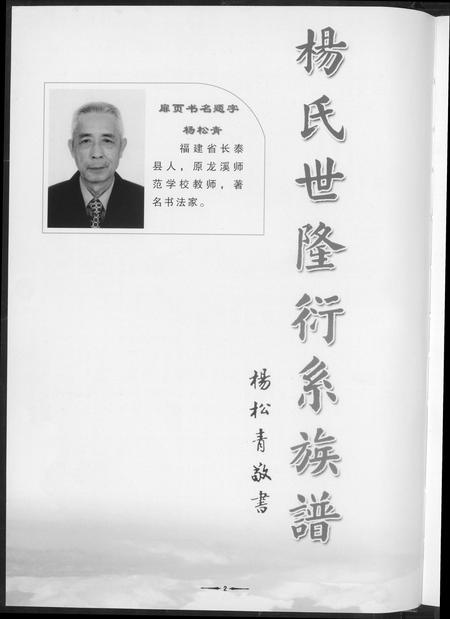 楊氏世隆衍系族譜
楊松青敬書
扉页书名题字
杨松青
福建省长泰
县人，原龙溪师
范学校教师，著
名书法家。
2